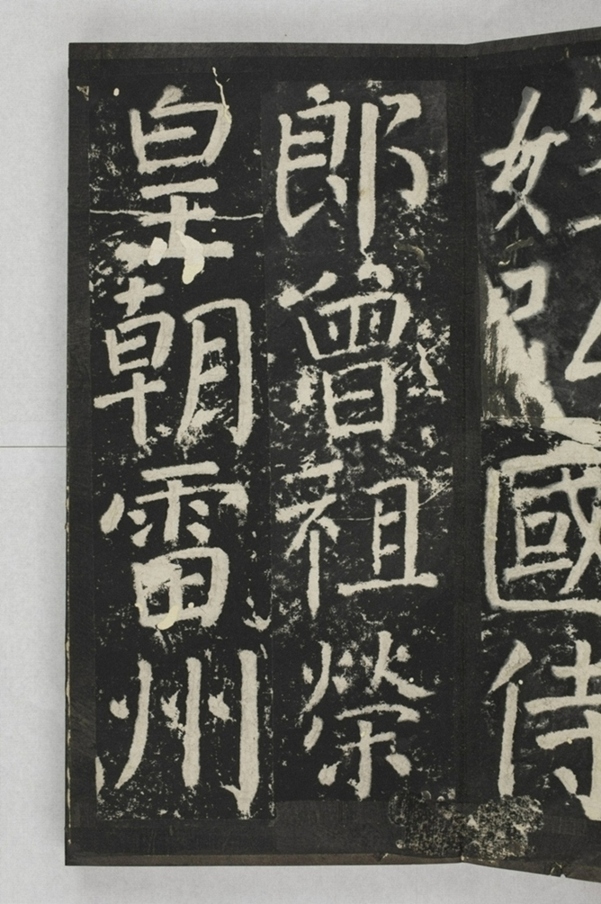 姓國侍
郎曾祖榮
皇朝雷州